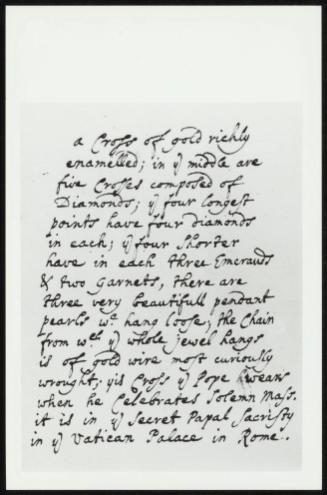 a Cross of gold richly
enamelled; in yͤ middle are
five Crosses composed of
Diamonds; yͤ four longest
points have four diamonds
in each; yͤ four shorter
have in each three Emerauds
& two Garnets, there are
three very beautifull pendant
pearls wͨ hang loose; the Chain
from wͨͪ yͤ whole jewel hangs
is of gold wire most curiously
wrought; yis Cross yͤ Pope wears
when he Celebrates Solemn Mass.
it is in yͤ Secret Papal Sacristy
in yͤ Vatican Palace in Rome..